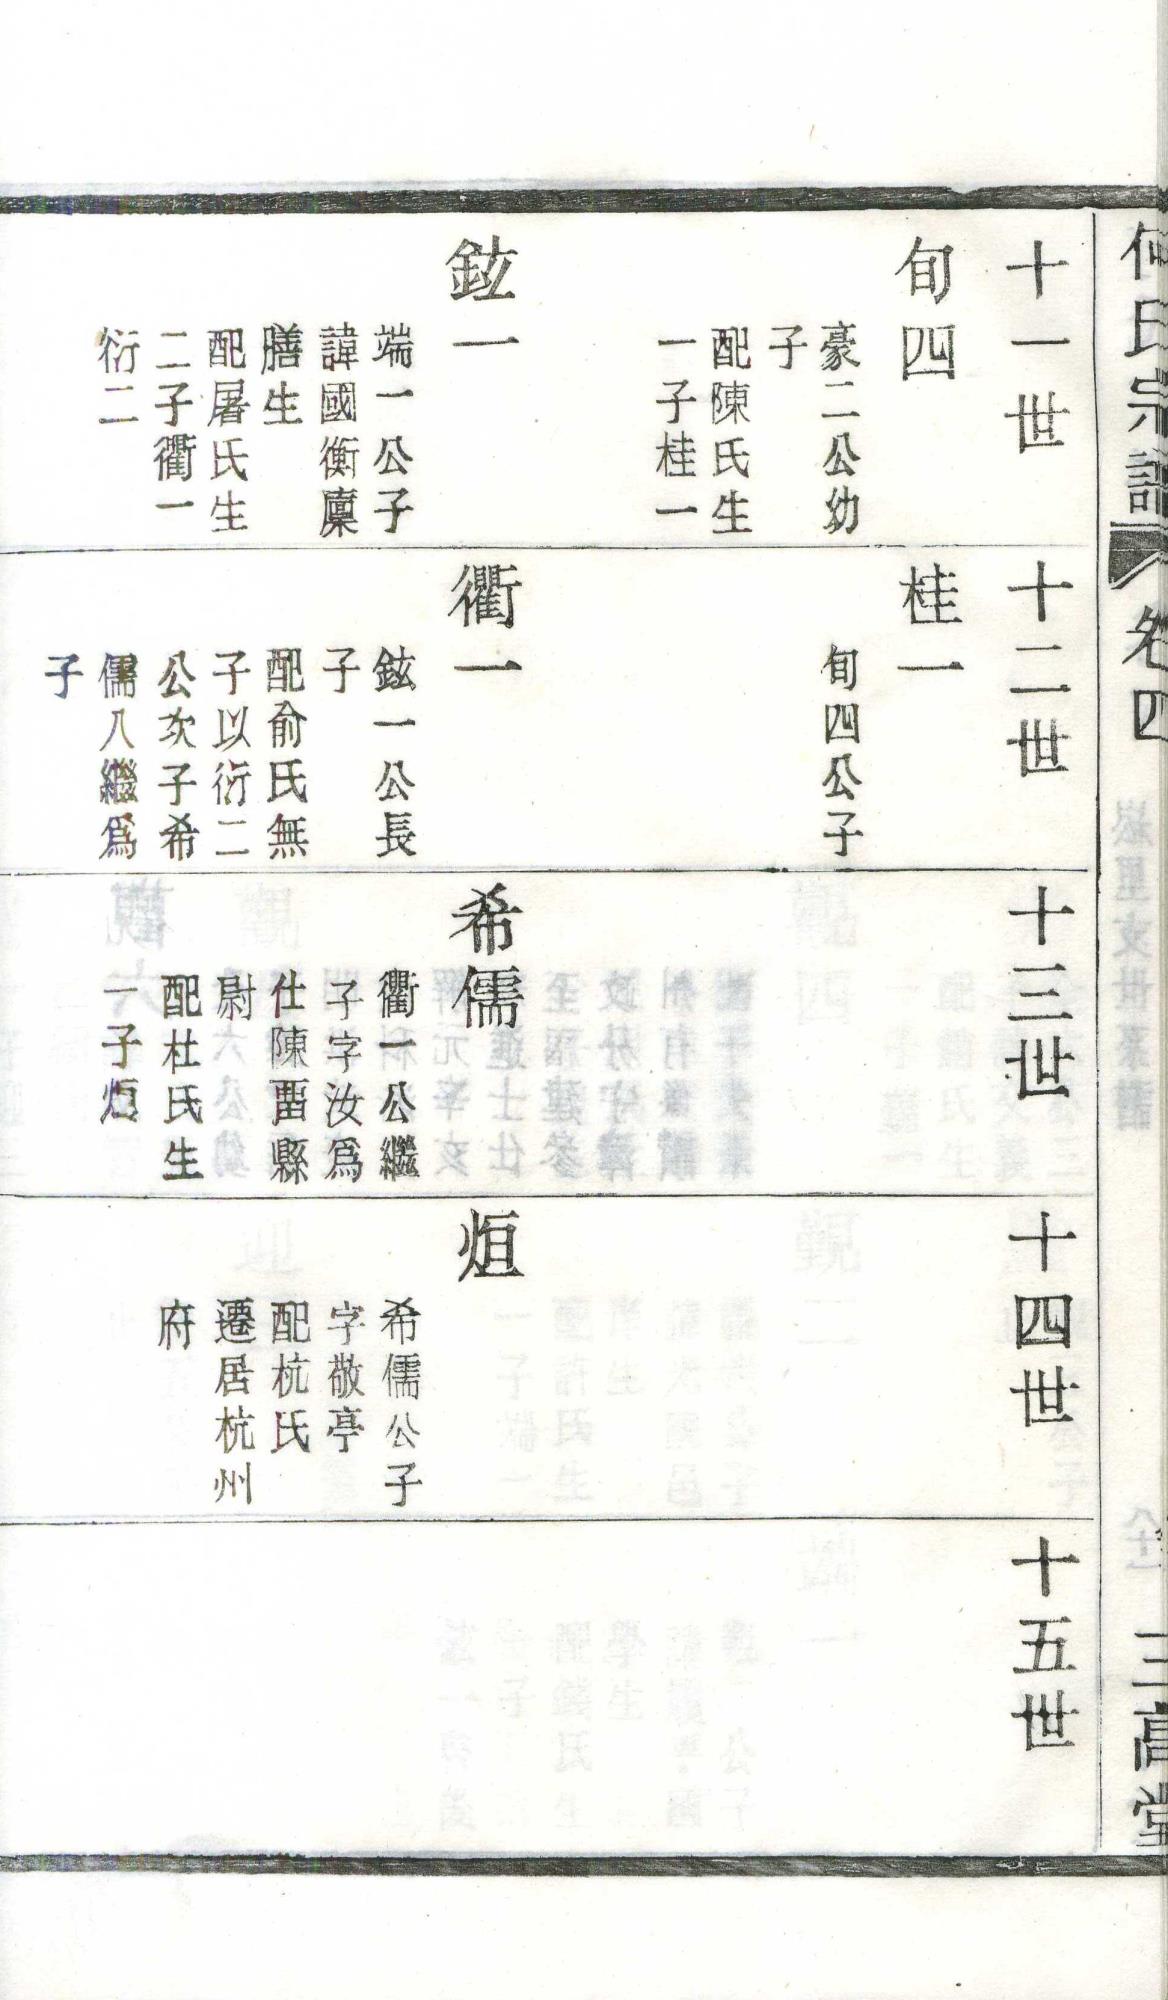 何氏宗譜
卷四
三高堂
十一世
旬四
豪二公幼
子
配陳氏生
一子桂一
鉉一
端一公子
諱國衡廩
膳生
配屠氏生
二子衢一
衍二
十二世
桂一
旬四公子
衢一
鉉一公長
子
配俞氏無
子以衍二
公次子希
儒入繼爲
子
十三世
希儒
衢一公繼
子字汝爲
仕陳畱縣
尉
配杜氏生
一子烜
十四世
烜
希儒公子
字敬亭
配杭氏
遷居杭州
府
十五世